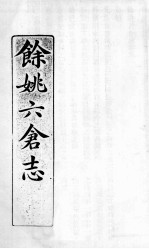 餘姚六倉志